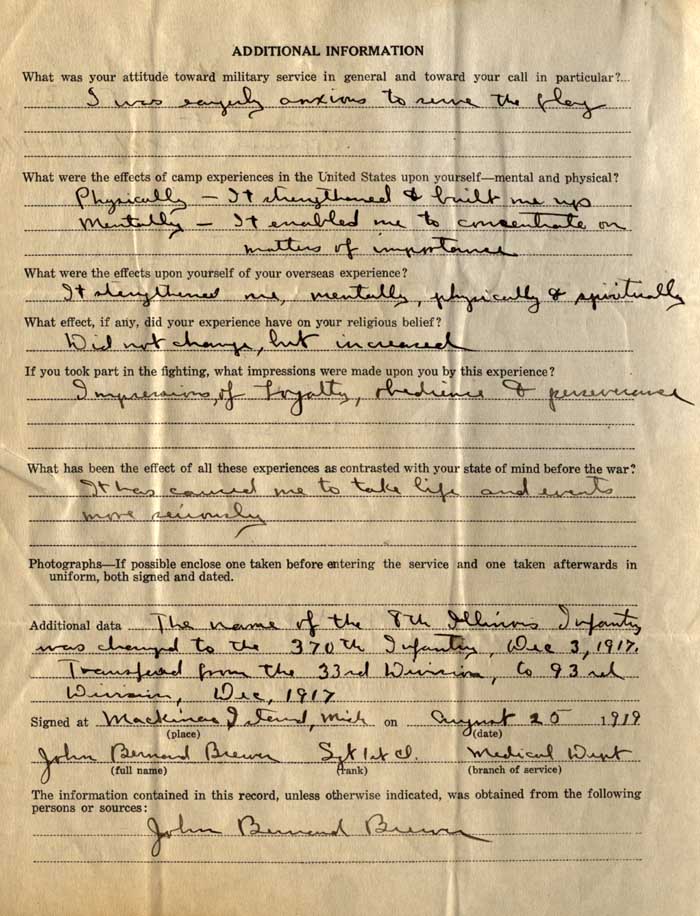 ADDITIONAL INFORMATION
What was your attitude toward military service in general and toward your call in particular?...
I was eagerly anxious to serve the flag
What were the effects of camp experiences in the United States upon yourself—mental and physical?
Physically – It strengthened & built me up
Mentally – It enabled me to concentrate on
matters of importance
What were the effects upon yourself of your overseas experience?
It strengthened me, mentally, physically & spiritually
What effect, if any, did your experience have on your religious belief?
Did not change, but increased
If you took part in the fighting, what impressions were made upon you by this experience?
Impressions, of Loyalty, obedience & perseverance
What has been the effect of all these experiences as contrasted with your state of mind before the war?
It has caused me to take life and events
more seriously
Photographs—If possible enclose one taken before entering the service and one taken afterwards in
uniform, both signed and dated.
Additional data The name of the 8th Illinois Infantry
was changed to the 370th Infantry, Dec 3, 1917.
Transfered from the 33rd Division, to 93rd
Division, Dec, 1917
Signed at Mackinac Island, Mich on August 25 1919
(place) (date)
John Bernard Brewer Sgt 1st Cl. Medical Dept
(full name) (rank) (branch of service)
The information contained in this record, unless otherwise indicated, was obtained from the following
persons or sources:
John Bernard Brewer